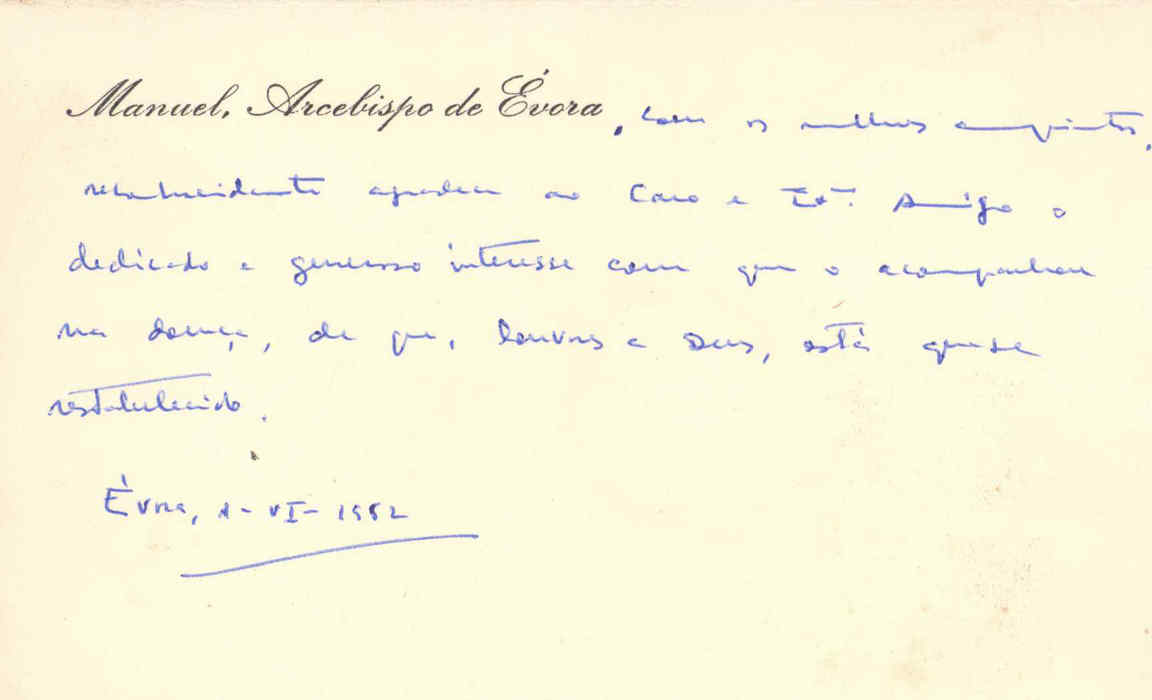 Manuel, Arcebispo de Évora, com os melhores cumprimentos,
reconhecidamente agradece ao Caro e Exº. Amigo o
dedicado e generoso interesse com que o acompanhou
na doença, de que, louvores a Deus, está quase
restabelecido.
Évora, 1-VI-1952